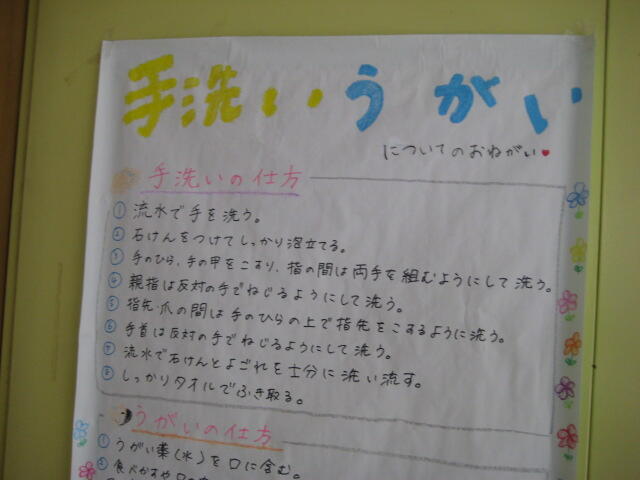 手洗いうがい
についてのおねがい♥
手洗いの仕方
① 流水で手を洗う。
② 石けんをつけてしっかり泡立てる。
③ 手のひら、手の甲をこすり、指の間は両手を組むようにして洗う。
④ 親指は反対の手でねじるようにして洗う。
⑤ 指先・爪の間は手のひらの上で指先をこするように洗う。
⑥ 手首は反対の手でねじるようにして洗う。
⑦ 流水で石けんとよごれを十分に洗い流す。
⑧ しっかりタオルでふき取る。
うがいの仕方
① うがい薬(水)を口に含む。
② 食べかすや口の